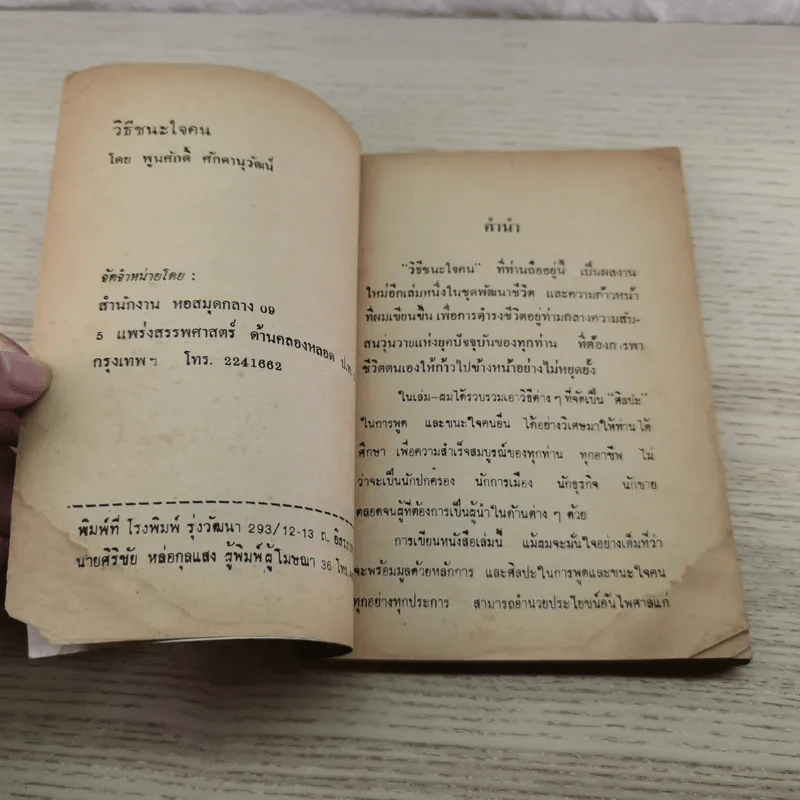 วิธีชนะใจคน
โดย พูนศักดิ์ ศักดานุวัฒน์
จัดจำหน่ายโดย :
สำนักงาน หอสมุดกลาง 09
5 แพร่งสรรพศาสตร์ ด้านคลองหลอด ป.ณ.
กรุงเทพฯ โทร. 2241662
พิมพ์ที่ โรงพิมพ์ รุ่งวัฒนา 293/12-13 ถ.
นายศิริชัย หล่อกุลแสง ผู้พิมพ์ผู้โฆษณา 36 โทร.
คำนำ
"วิธีชนะใจคน" ที่ท่านถืออยู่นี้ เป็นผลงาน
ใหม่อีกเล่มหนึ่งในชุดพัฒนาชีวิต และความก้าวหน้า
ที่ผมเขียนขึ้น เพื่อการดำรงชีวิตอยู่ท่ามกลางความสับ-
สนวุ่นวายแห่งยุคปัจจุบันของทุกท่าน ที่ต้องการพา
ชีวิตตนเองให้ก้าวไปข้างหน้าอย่างไม่หยุดยั้ง
ในเล่ม-ผมได้รวบรวมเอาวิธีต่าง ๆ ที่จัดเป็น "ศิลปะ"
ในการพูด และชนะใจคนอื่น ได้อย่างวิเศษมาให้ท่านได้
ศึกษา เพื่อความสำเร็จสมบูรณ์ของทุกท่าน ทุกอาชีพ ไม่
ว่าจะเป็นนักปกครอง นักการเมือง นักธุรกิจ นักขาย
ตลอดจนผู้ที่ต้องการเป็นผู้นำในด้านต่าง ๆ ด้วย
การเขียนหนังสือเล่มนี้ แม้ผมจะมั่นใจอย่างเต็มที่ว่า
จะพร้อมมูลด้วยหลักการ และศิลปะในการพูดและชนะใจคน
ทุกอย่างทุกประการ สามารถอำนวยประโยชน์อันไพศาลแก่